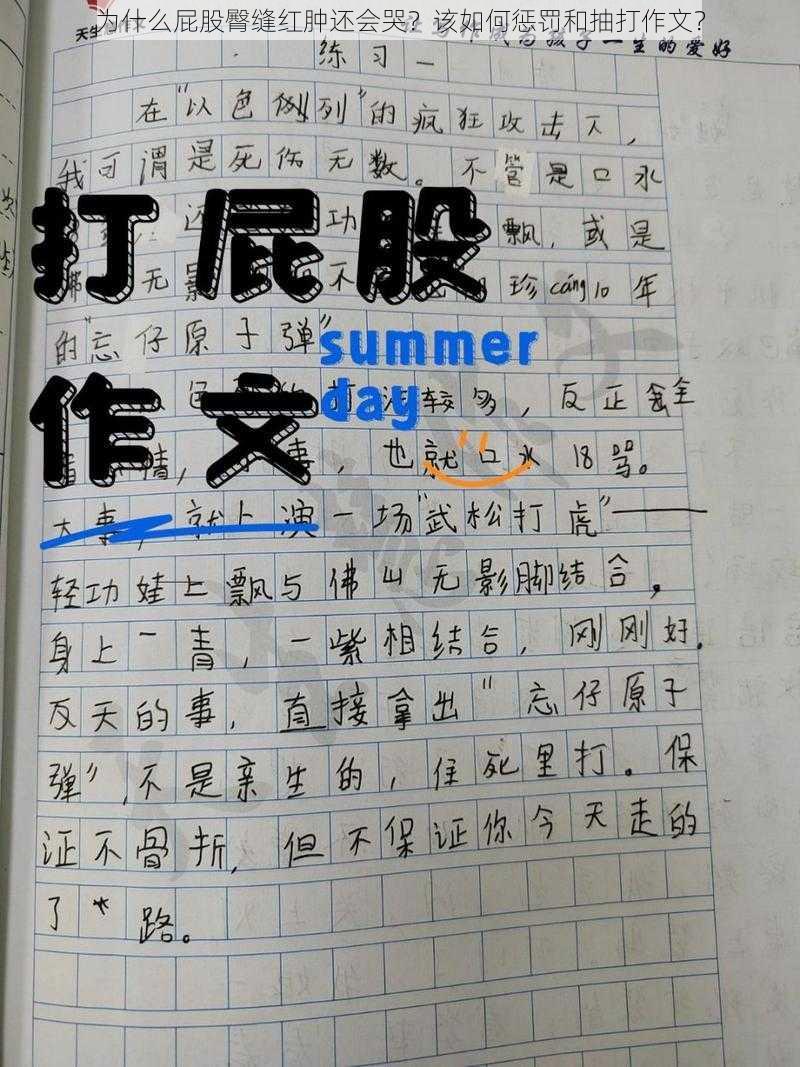 为什么屁股臀缝红肿还会哭？该如何惩罚和抽打作文？
天生
作文
生的爱好
练习一
在“以色例列”的疯狂攻击下，
我可谓是死伤无数。不管是口水
还 功 飘，或是
无影 不 珍cáng10年
的“忘仔原子弹”
打屁股
作文
summer
day
打法较多，反正
事，也就口水18骂。
大事，就上演一场“武松打虎”——
轻功娃上飘与佛山无影脚结合，
身上一青，一紫相结合，刚刚好.
反天的事，直接拿出“忘仔原子
弹”，不是亲生的，往死里打。保
证不骨折，但不保证你今天走的
了*路。